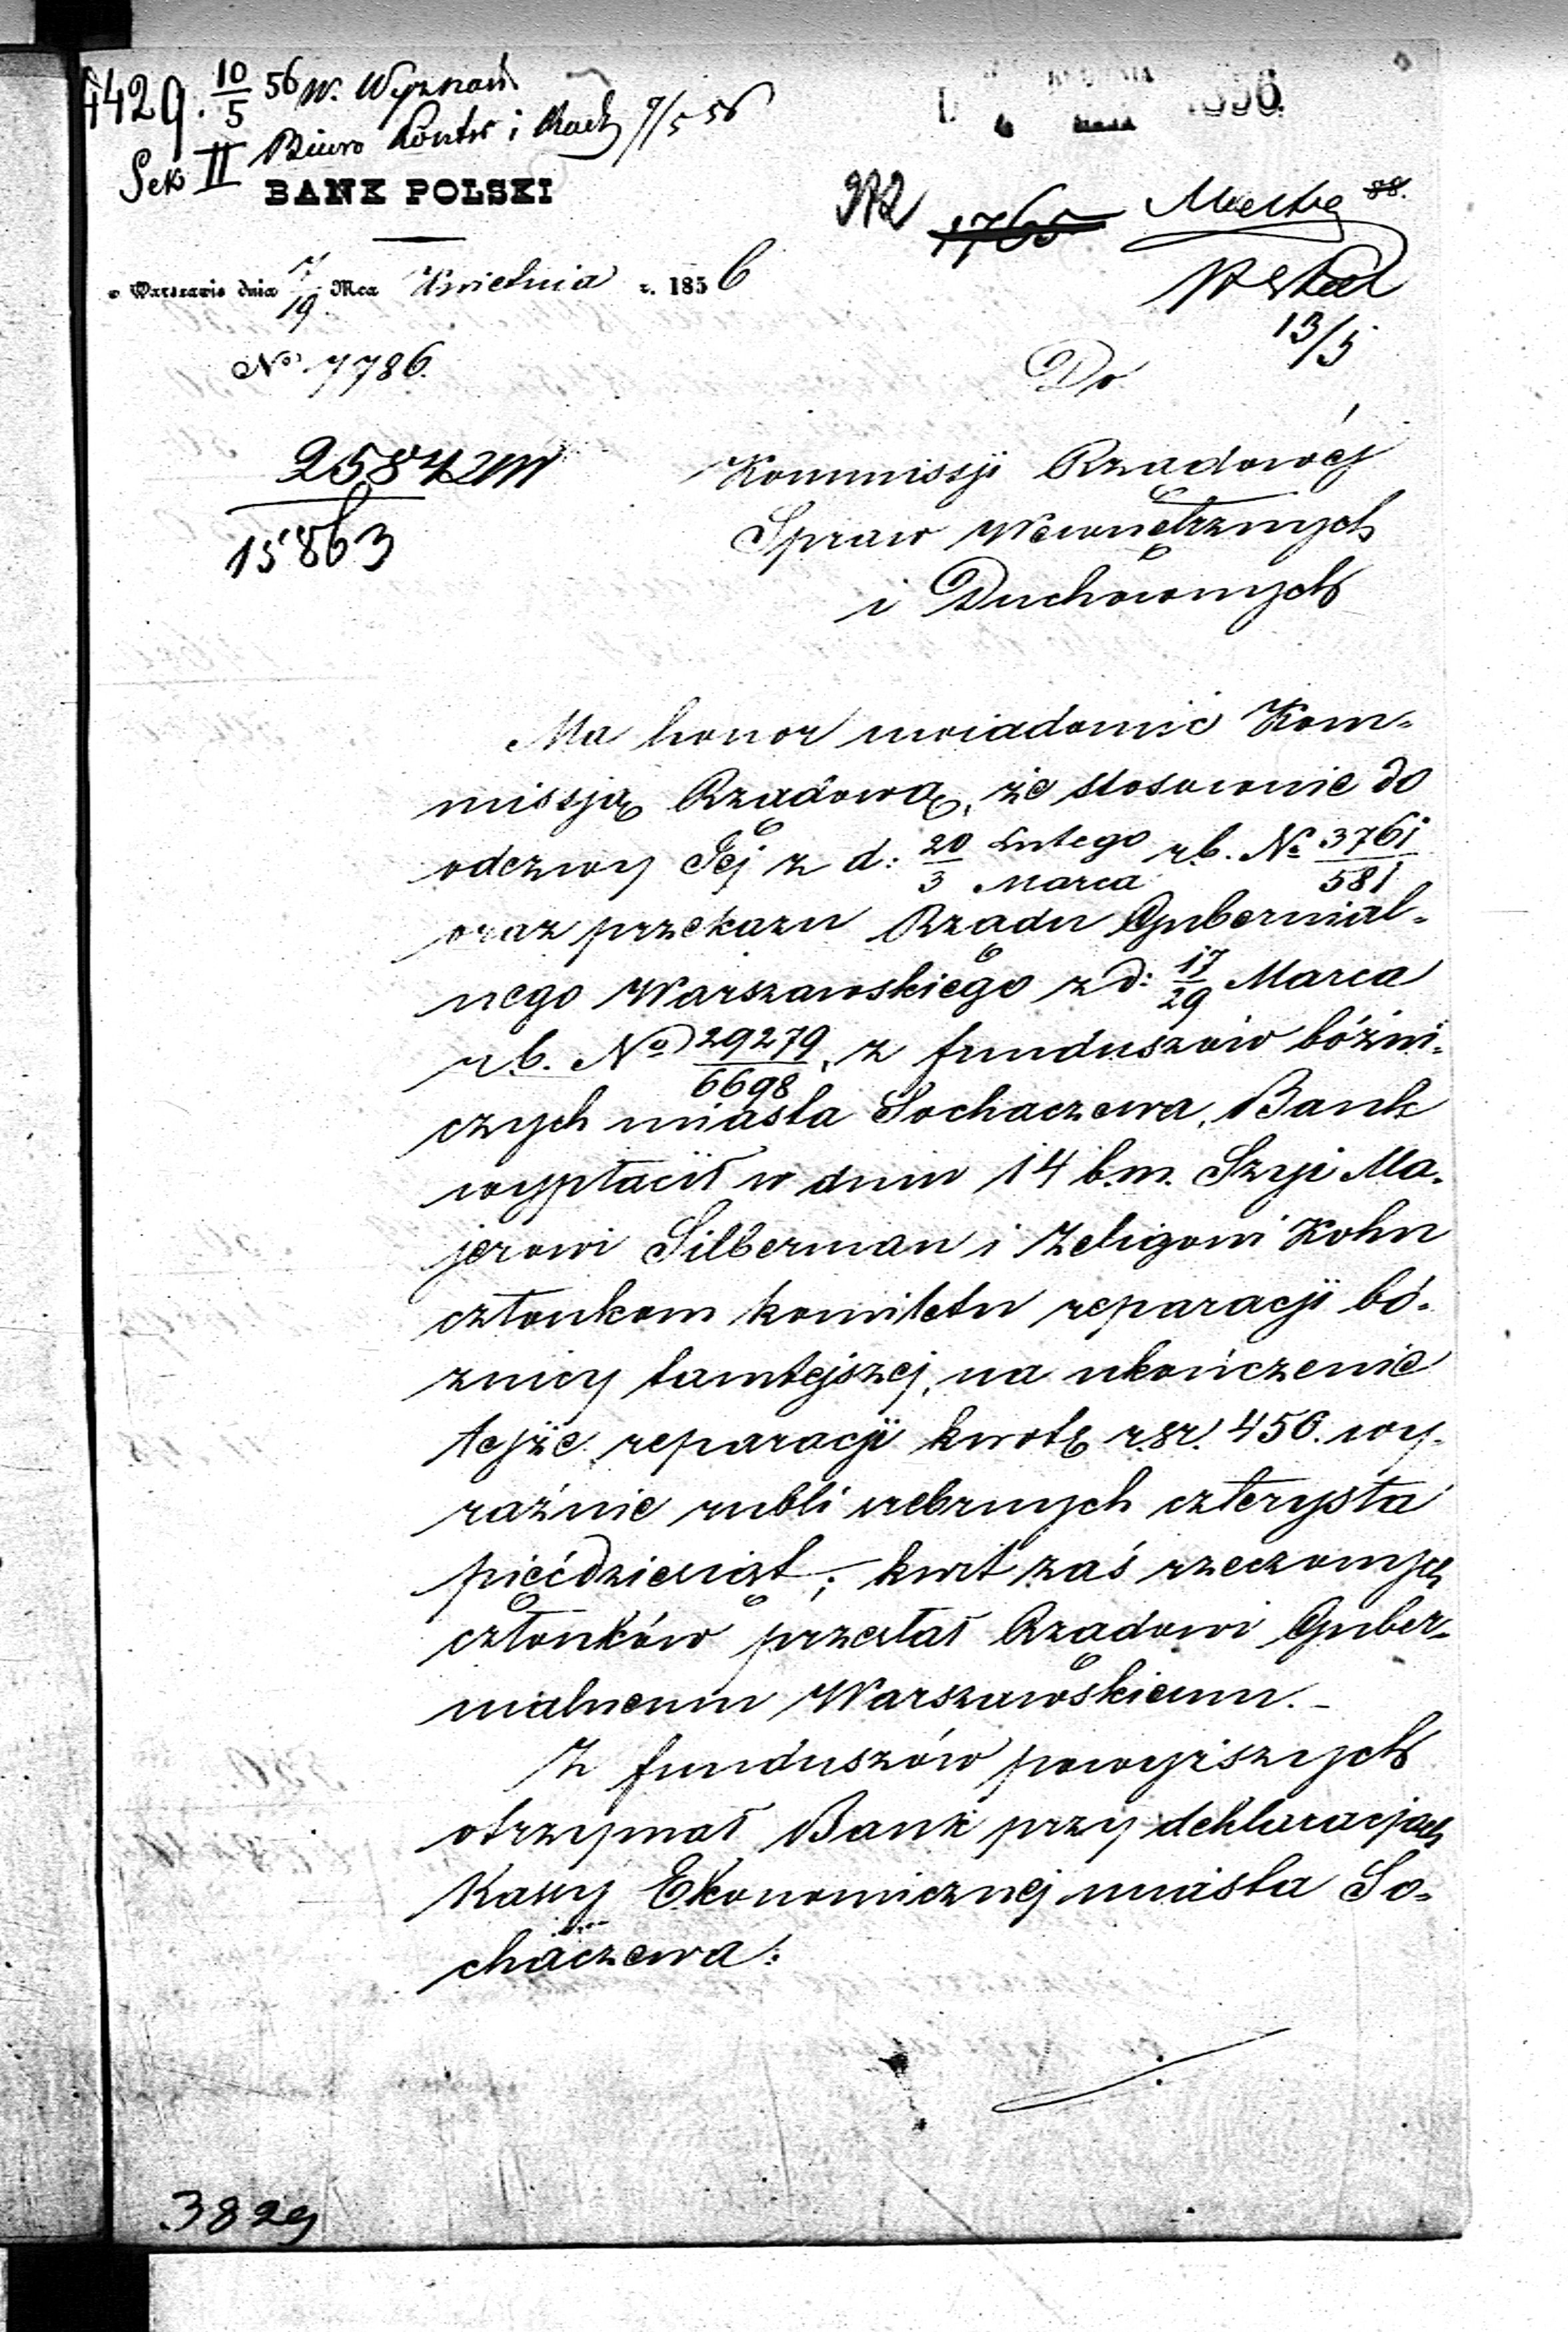 4429. 10/5 56 W. Wyznań
Sek II Biuro Kontr i Rach 9/5 56
1856
BANK POLSKI
1765
88.
w Warszawie dnia 7/19 Mca Kwietnia r. 1856
13/5
No 7786.
Do
25842
15863
Kommissji Rządowéj
Spraw Wewnętrznych
i Duchownych
Ma honor uwiadomić Kom-
missją Rządową, że stosownie do
odezwy Jej z d: 20 Lutego/3 Marca r.b. No 3761/581
oraz przekazu Rządu Gubernial-
nego Warszawskiego z d: 17/29 Marca
r.b. No 29279/6698, z funduszów bóźni-
czych miasta Sochaczewa, Bank
wypłacił w dniu 14 b.m. Szyi Ma-
jerowi Silberman i Zeligowi Kohn
członkom komitetu reparacji bó-
znicy tamtejszej, na ukończenie
tejże reparacji kwotę r.sr. 450. wy-
raźnie rubli srebrnych czterysta
pięćdziesiąt; kwit zaś rzeczonych
członków przesłał Rządowi Guber-
nialnemu Warszawskiemu.-
Z funduszów powyższych
otrzymał Bank przy deklaracjach
Kassy Ekonomicznej miasta So-
chaczewa:
3829